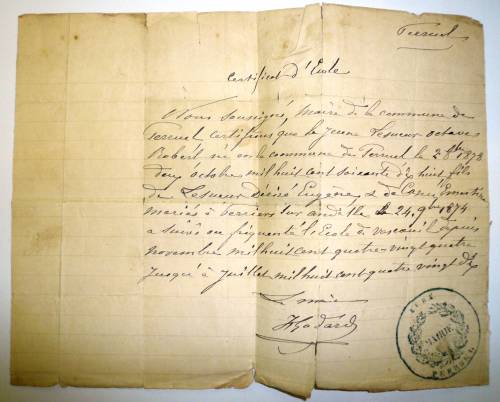 Perruel
Certificat d'Ecole
Nous Soussigné, Maire de la commune de
Perruel certifions que le jeune Lesueur octave
Robert né en la commune de Perruel le 2 8bre 1878
deux octobre mil huit cent soixante dix huit fils
de Lesueur désiré Eugène & de
mariés à perriers sur andelle le 24 9bre 1874
a suivi ou fréquenté l'Ecole de vascoeuil depuis
novembre mil huit cent quatre-vingt quatre
jusqu'à juillet mil huit cent quatre vingt dix
Le maire
MAIRIE
PERRUEL
EURE